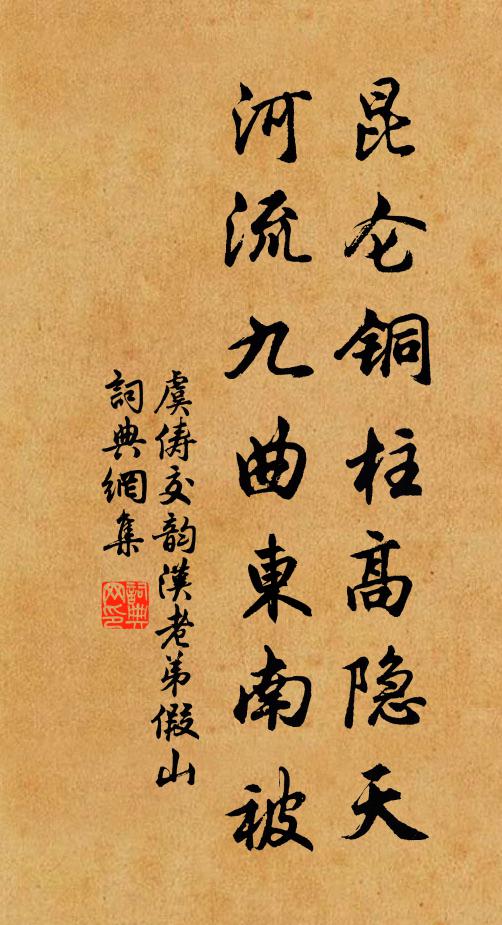 昆仑铜柱高隐天
河流九曲東南被
虞俦交韵漢老弟假山
詞典網集
詞典网印